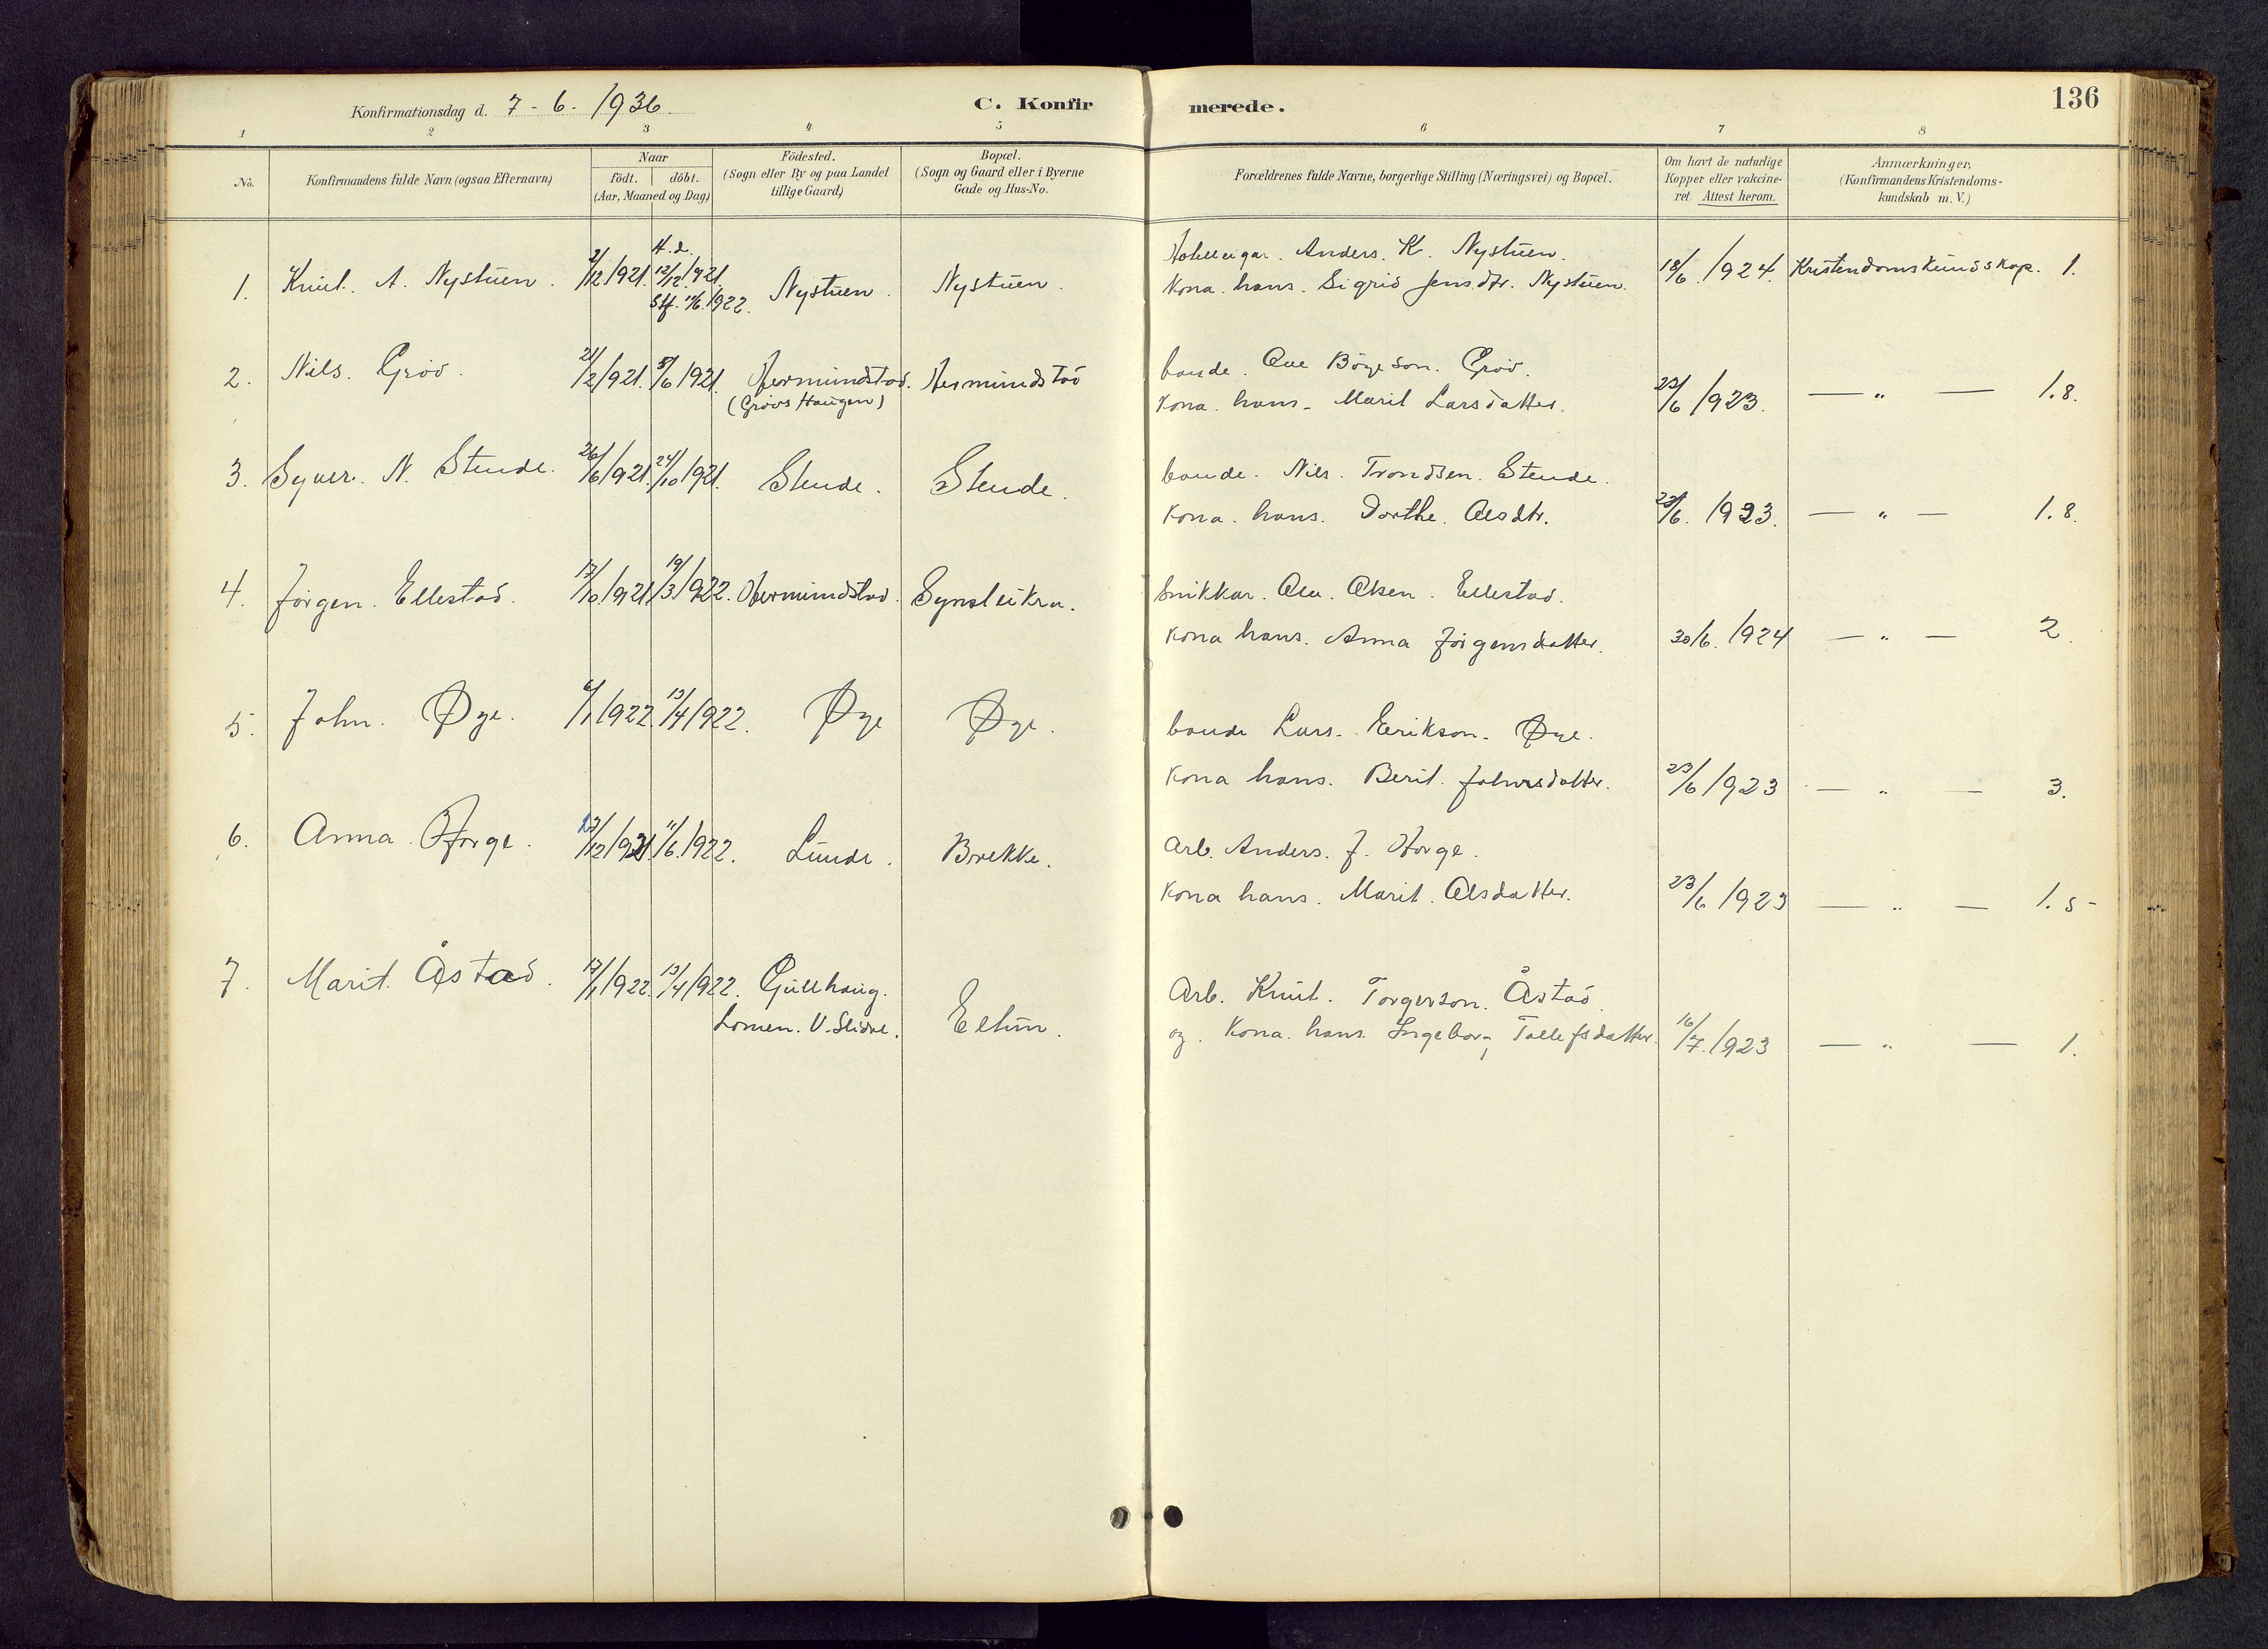 Konfirmationsdag d. 7-6-1936.
C. Konfirmerede.
136
1 2 3 4 5 6 7 8
No.
Konfirmandens fulde Navn (ogsaa Efternavn)
Naar
födt. döbt.
(Aar, Maaned og Dag)
Födested.
(Sogn eller By og paa Landet
tillige Gaard)
Bopæl.
(Sogn og Gaard eller i Byerne
Gade og Hus-No.
Forældrenes fulde Navne, borgerlige Stilling (Næringsvei) og Bopæl.
Om havt de naturlige
Kopper eller vakcine-
ret. Attest herom.
Anmærkninger.
(Konfirmandens Kristendoms-
kundskab m. V.)
1. Knut. A. Nystuen. 2/12/1921. H.d. 12/12/1921. Stf. 11/6.1922. Nystuen. Nystuen.
Hotelleigar. Anders. K. Nystuen.
Kona. hans. Sigrid Jensdtr. Nystuen. 18/6./1924. Kristendomskundskap. 1.
2. Nils. Gröv. 21/2/1921. 5/6/1921. Hermundstad. Hermundstad
(Grövs Haugen)
bonde. Ove Böyeson. Gröv.
Kona. hans. Marit Larsdatter. 23/6/1923. — " — 1.8.
3. Syver. N. Stende. 26/6/1921. 24/10/1921. Stende. Stende.
bonde. Nils. Trondsen. Stende.
Kona. hans. Dorthe. Olsdtr. 23/6./1923. — " — 1.8.
4. Jörgen. Ellestad. 17/10/1921. 19/3/1922. Hermundstad. Synsleikra.
Snikkar. Ola. Olsen. Ellestad.
Kona hans. Anna Jörgensdatter. 30/6./1924 — " — 2.
5. John. Øye. 6/1/1922. 13/4/1922. Øye Øye.
bonde Lars. Erikson. Øye.
Kona hans. Berit. Johnsdatter. 23/6/1923 — " — 3.
6. Anna Horge. 27/12/1921. 11/6./1922. Lunde. Brekke.
Arb. Anders. J. Horge.
Kona hans. Marit. Olsdatter. 23/6/1923 — " — 1.5-
7. Marit. Åstad. 17/1/1922. 13/4/1922. Gullhaug.
Lomen. V. Slidre. Eltun.
Arb. Knut. Torgerson. Åstad.
og. Kona. hans. Ingeborg Tollefsdatter. 16/7./1923 — " — 1.